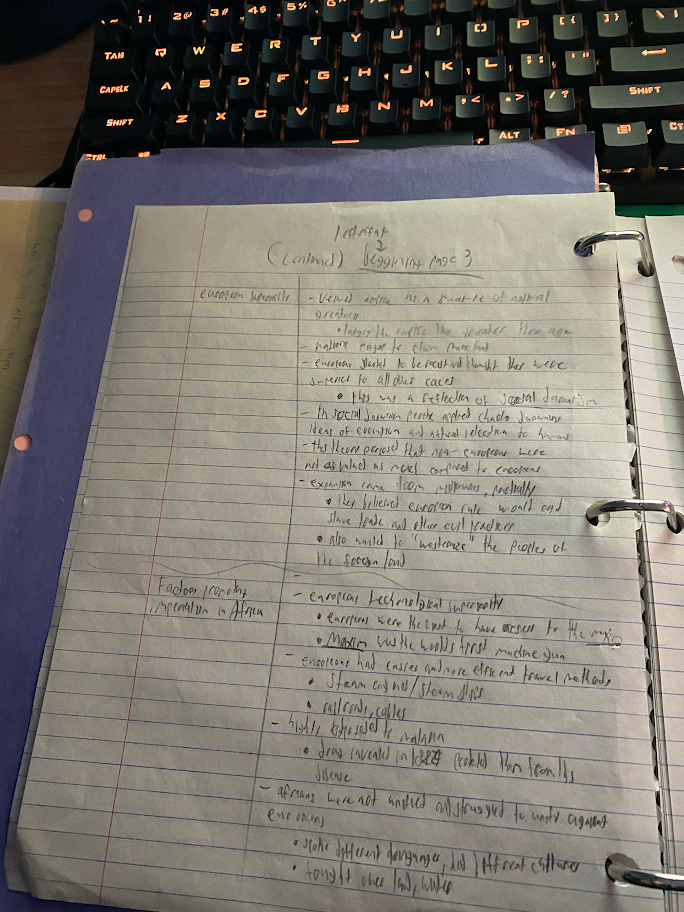 ~ 1! 2@ 3# 4$ 5%
TAB Q W E R T Y U I O P [{ ]} \|
CAPSLK A S D F G H J K L ;: '"
SHIFT Z X C V B N M ,< .> /? SHIFT
CTRL ALT FN
2
(continued) beggining page 3
european
- viewed empire as a measure of national
greatness
• larger the empire the greater the
- nations eager to claim more land
- europeans started to be racist and thought they were
superior to all other races
• this was a reflection of social darwinism
In social darwinism people applied charles
ideas of evolution and natural selection to humans
- this theory proposed that non-europeans were
not as valued as much compared to europeans
- expansion came from
• they believed european rule would end
slave trade and other evil practices
• also wanted to "westernize" the peoples of
the foreign land
-
Factors promoting
imperialism in Africa
- european technological superiority
• europeans were the to have access to the maxim
• Maxim was the worlds first machine gun
- europeans had easier and more efficient travel methods
• steam engines/steam ships
• railroads, cables
- highly exposed to malaria
• drug invented in protected them from this
disease
- africans were not unified and struggled to unify against
europeans
• spoke different languages, had different cultures
• fought over land, water